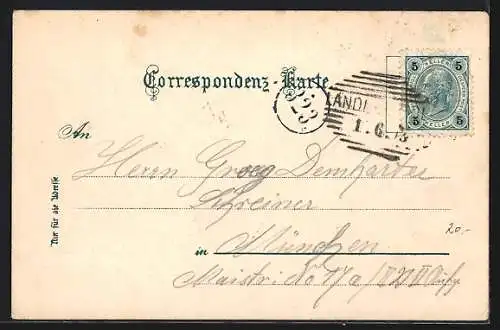 Correspondenz-Karte
5 5
HELLER
5 5
323
LANDL
1.6.
An
Herrn Georg Demharter
Schreiner
in München
Maistr.
Nur für die Adresse
20.-